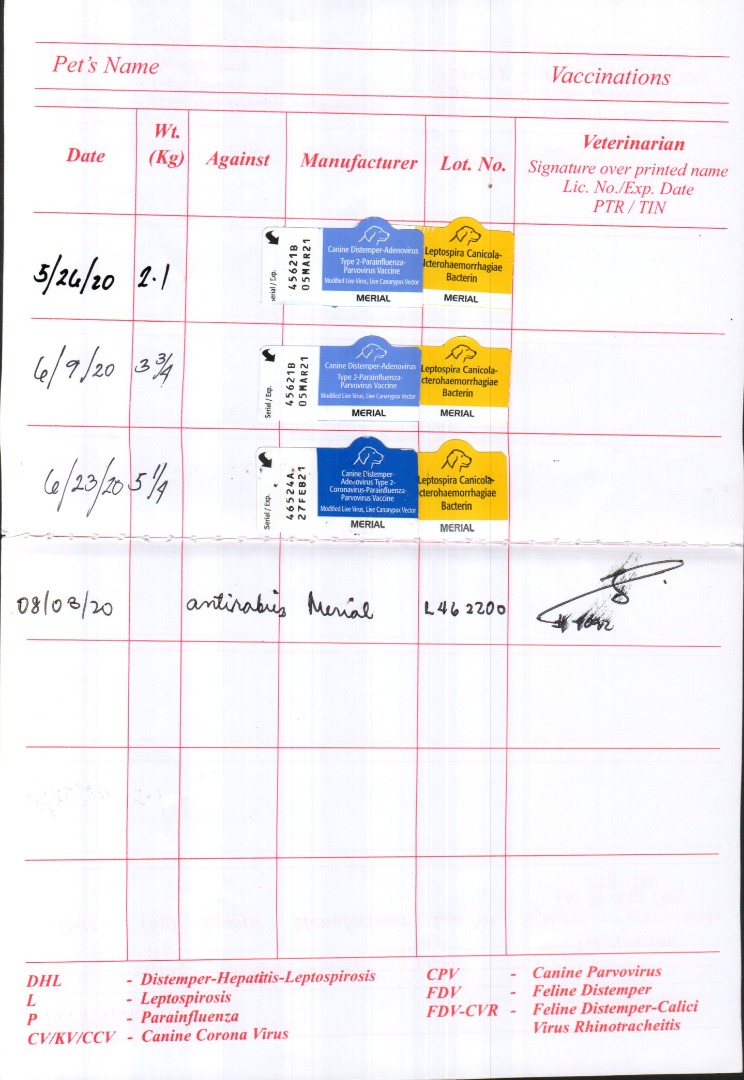 Pet's Name
Vaccinations
Date
Wt.
(Kg)
Against
Manufacturer
Lot. No.
Veterinarian
Signature over printed name
Lic. No./Exp. Date
PTR / TIN
5/26/20 2.1
Serial / Exp.
45621B
05MAR21
Canine Distemper-Adenovirus
Type 2-Parainfluenza-
Parvovirus Vaccine
Modified Live Virus, Live Canarypox Vector
MERIAL
Leptospira Canicola-
Icterohaemorrhagiae
Bacterin
MERIAL
6/9/20 3 3/4
Serial / Exp.
45621B
05MAR21
Canine Distemper-Adenovirus
Type 2-Parainfluenza-
Parvovirus Vaccine
Modified Live Virus, Live Canarypox Vector
MERIAL
Leptospira Canicola-
cterohaemorrhagiae
Bacterin
MERIAL
6/23/20 5 1/4
Serial / Exp.
46524A
27FEB21
Canine Distemper-
Adenovirus Type 2-
Coronavirus-Parainfluenza-
Parvovirus Vaccine
Modified Live Virus, Live Canarypox Vector
MERIAL
Leptospira Canicola-
cterohaemorrhagiae
Bacterin
MERIAL
08/03/20 antirabies Merial L462200
DHL - Distemper-Hepatitis-Leptospirosis
L - Leptospirosis
P - Parainfluenza
CV/KV/CCV - Canine Corona Virus
CPV - Canine Parvovirus
FDV - Feline Distemper
FDV-CVR - Feline Distemper-Calici
Virus Rhinotracheitis